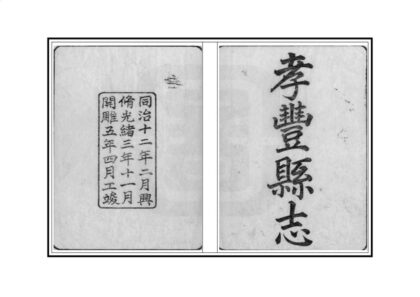 孝豐縣志
同治十二年二月興
脩光緒三年十一月
開雕五年四月工竣